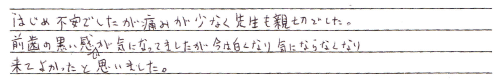 はじめ不安でしたが痛みが少なく先生も親切でした。
前歯の黒い感じが気になってましたが今は白くなり気にならなくなり
来てよかったと思いました。